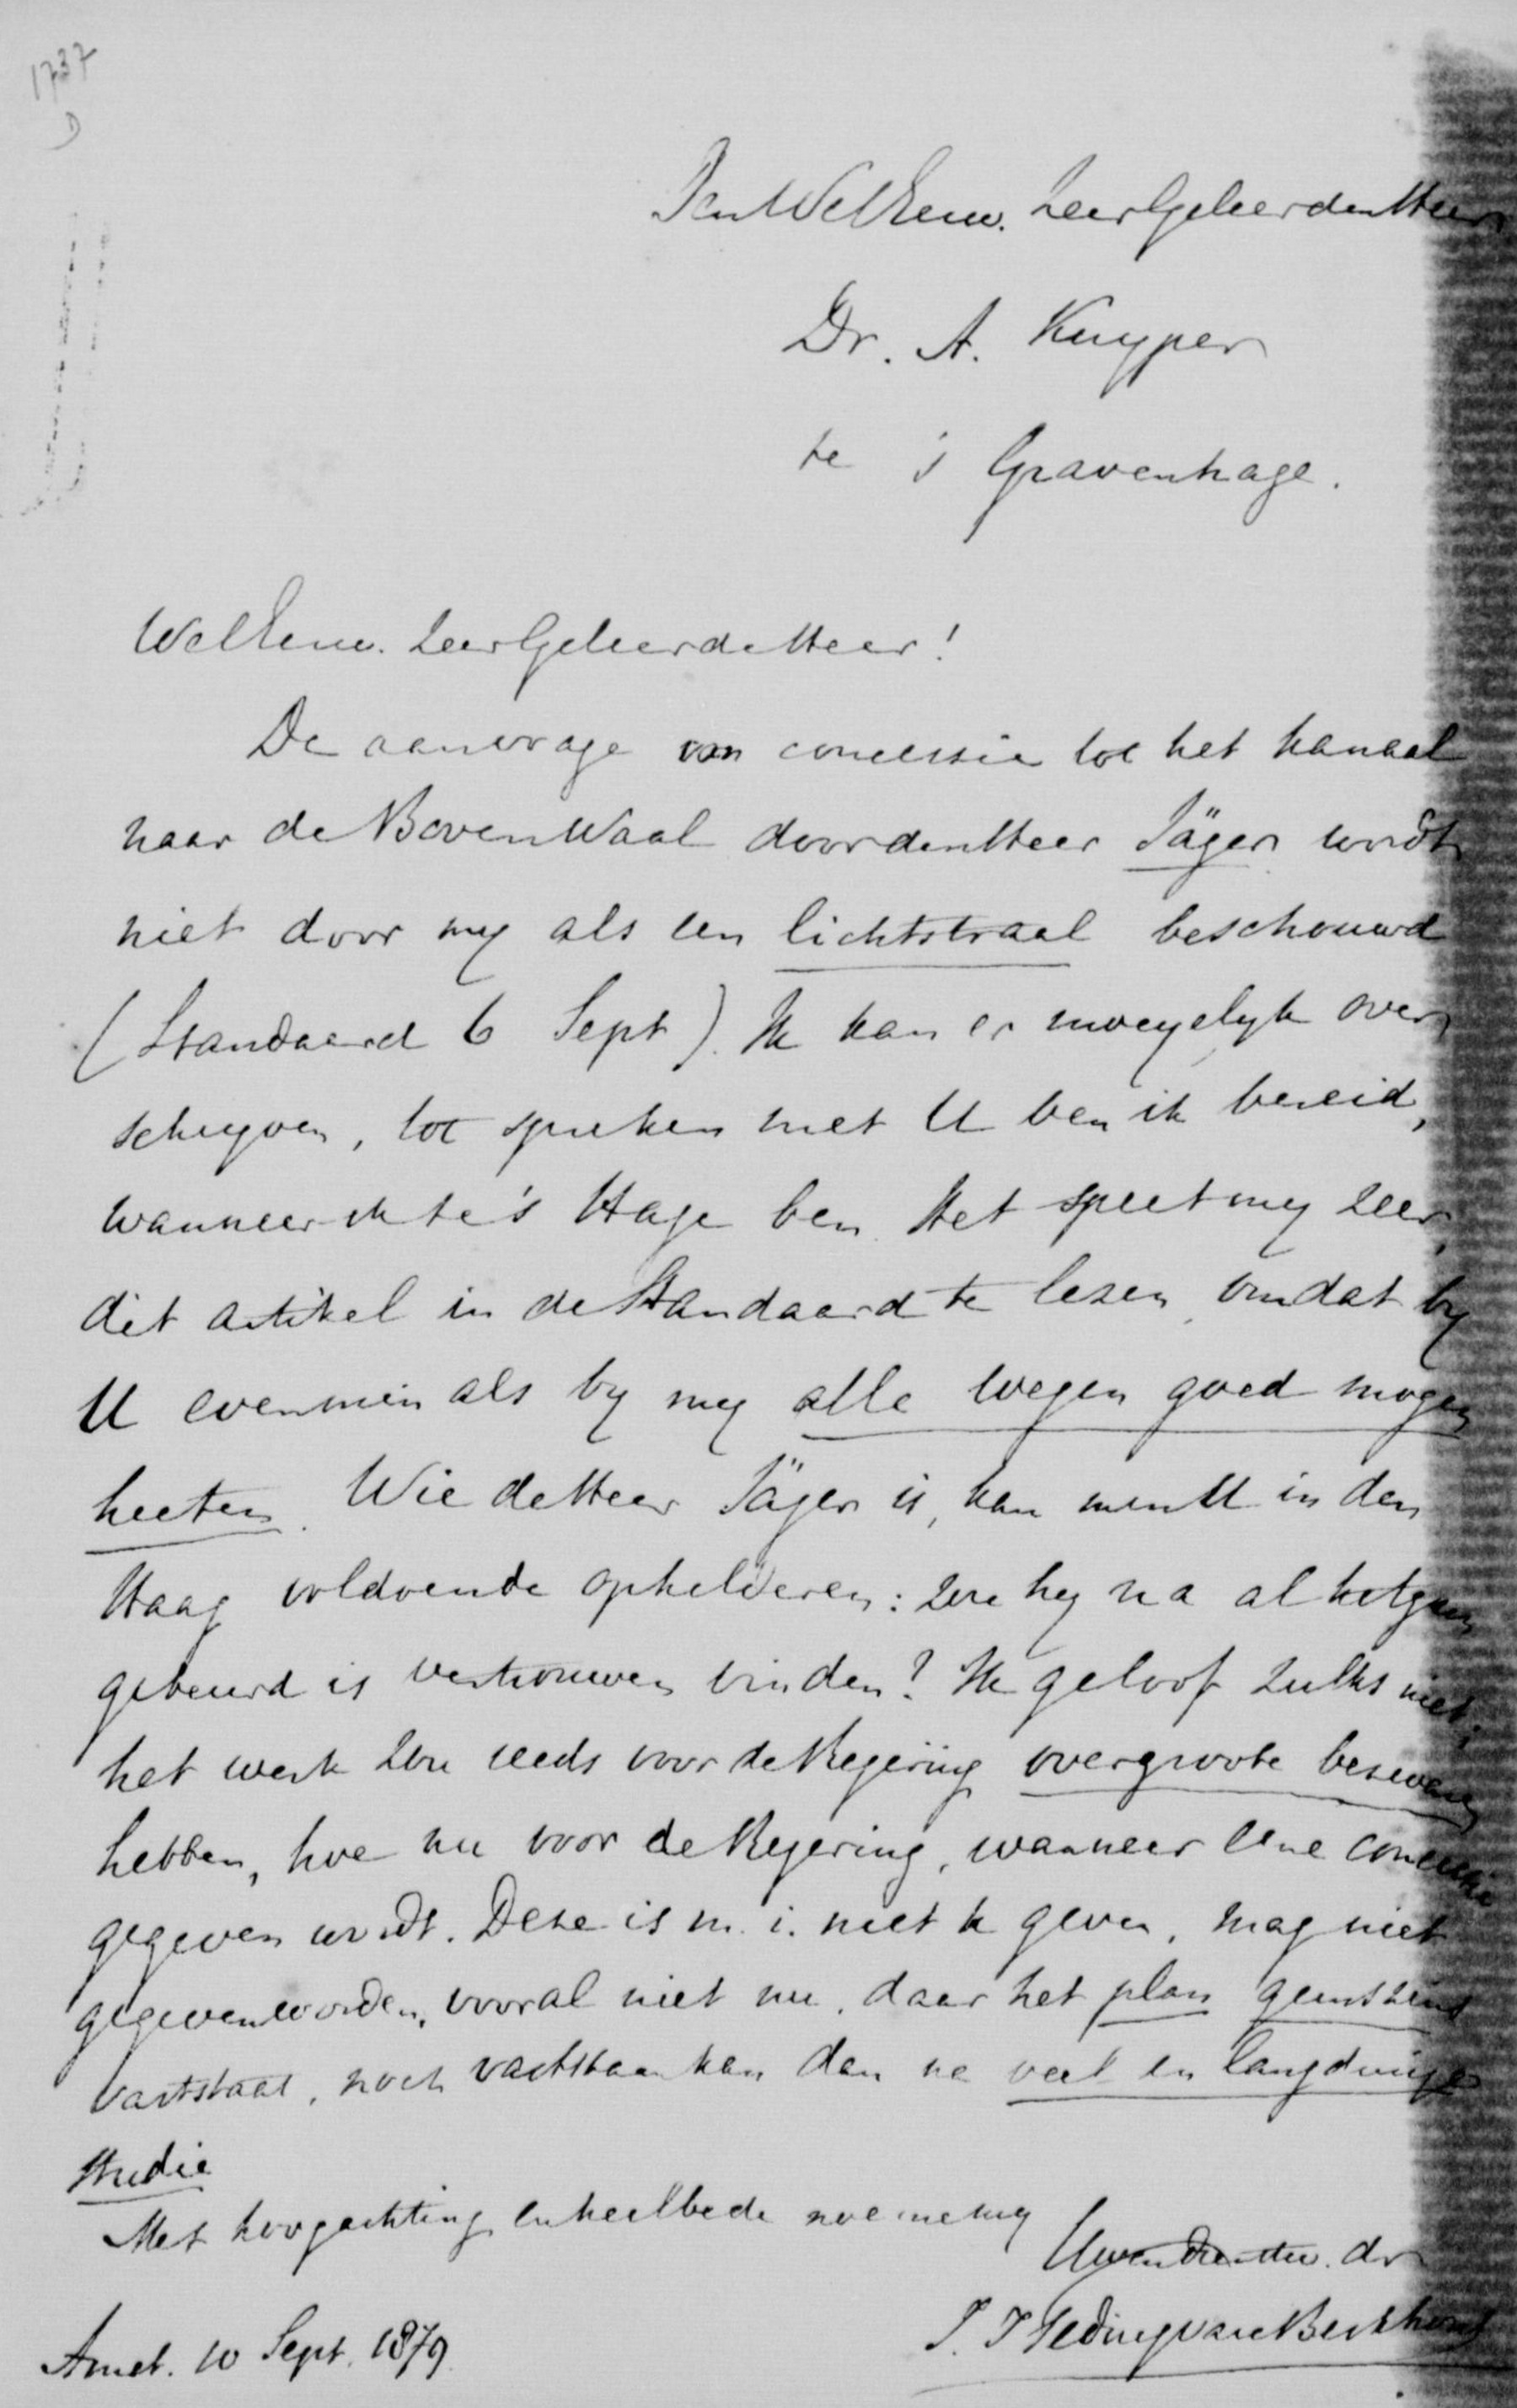 1737
D
Den WelEerw. ZeerGeleerden Heer
Dr. A. Kuyper
te 's Gravenhage.
WelEerw. ZeerGeleerde Heer!
De aanvrage van concessie tot het kanaal
naar de BovenWaal door den Heer Jäger wordt
niet door my als een lichtstraal beschouwd
(Standaard 6 Sept). Ik kan er moeyelyk over
schryven, tot spreken met U ben ik bereid,
wanneer ik te 's Hage ben. Het speet my zeer,
dit artikel in de Standaard te lezen, omdat by
U evenmin als by my alle wegen goed mogen
heeten. Wie de Heer Jäger is, kan men U in den
Haag voldoende ophelderen: zou hy na al hetgeen
gebeurd is vertrouwen vinden? Ik geloof zulks niet;
het werk zou reeds voor de Regering overgroote bezwaren
hebben, hoe nu voor de Regering, wanneer eene concessie
gegeven wordt. Deze is m. i. niet te geven, mag niet
gegeven worden, vooral niet nu, daar het plan geenszins
vaststaat, noch vaststaan kan dan na veel en langdurige
studie
Met hoogachting en heilbede noem ik my
Uw en dr
P. J. Teding van Berkhout
Amst. 10 Sept. 1879.